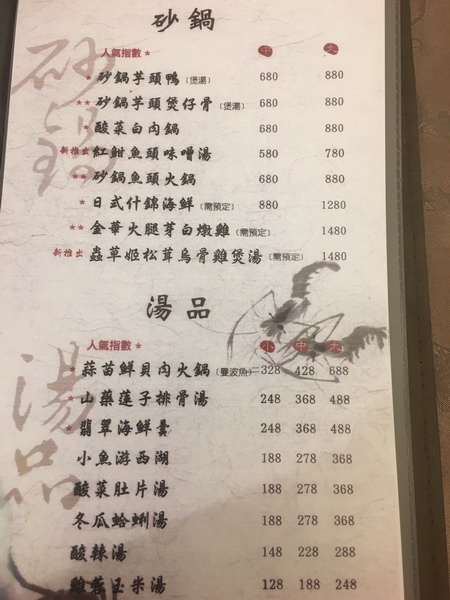 砂鍋
人氣指數★ 中 大
★砂鍋芋頭鴨(煲湯) 680 880
★★砂鍋芋頭煲仔骨(煲湯) 680 880
★酸菜白肉鍋 680 880
新推出紅魽魚頭味噌湯 580 780
★★砂鍋魚頭火鍋 680 880
★日式什錦海鮮(需預定) 880 1280
★★金華火腿芽白燉雞(需預定) 1480
新推出 蟲草姬松茸烏骨雞煲湯(需預定) 1480
湯品
人氣指數★ 小 中 大
★蒜苗鮮貝肉火鍋(曼波魚) 328 428 688
★山藥蓮子排骨湯 248 368 488
★翡翠海鮮羹 248 368 488
小魚游西湖 188 278 368
酸菜肚片湯 188 278 368
冬瓜蛤蜊湯 188 278 368
酸辣湯 148 228 288
雞蓉玉米湯 128 188 248
砂鍋
湯品